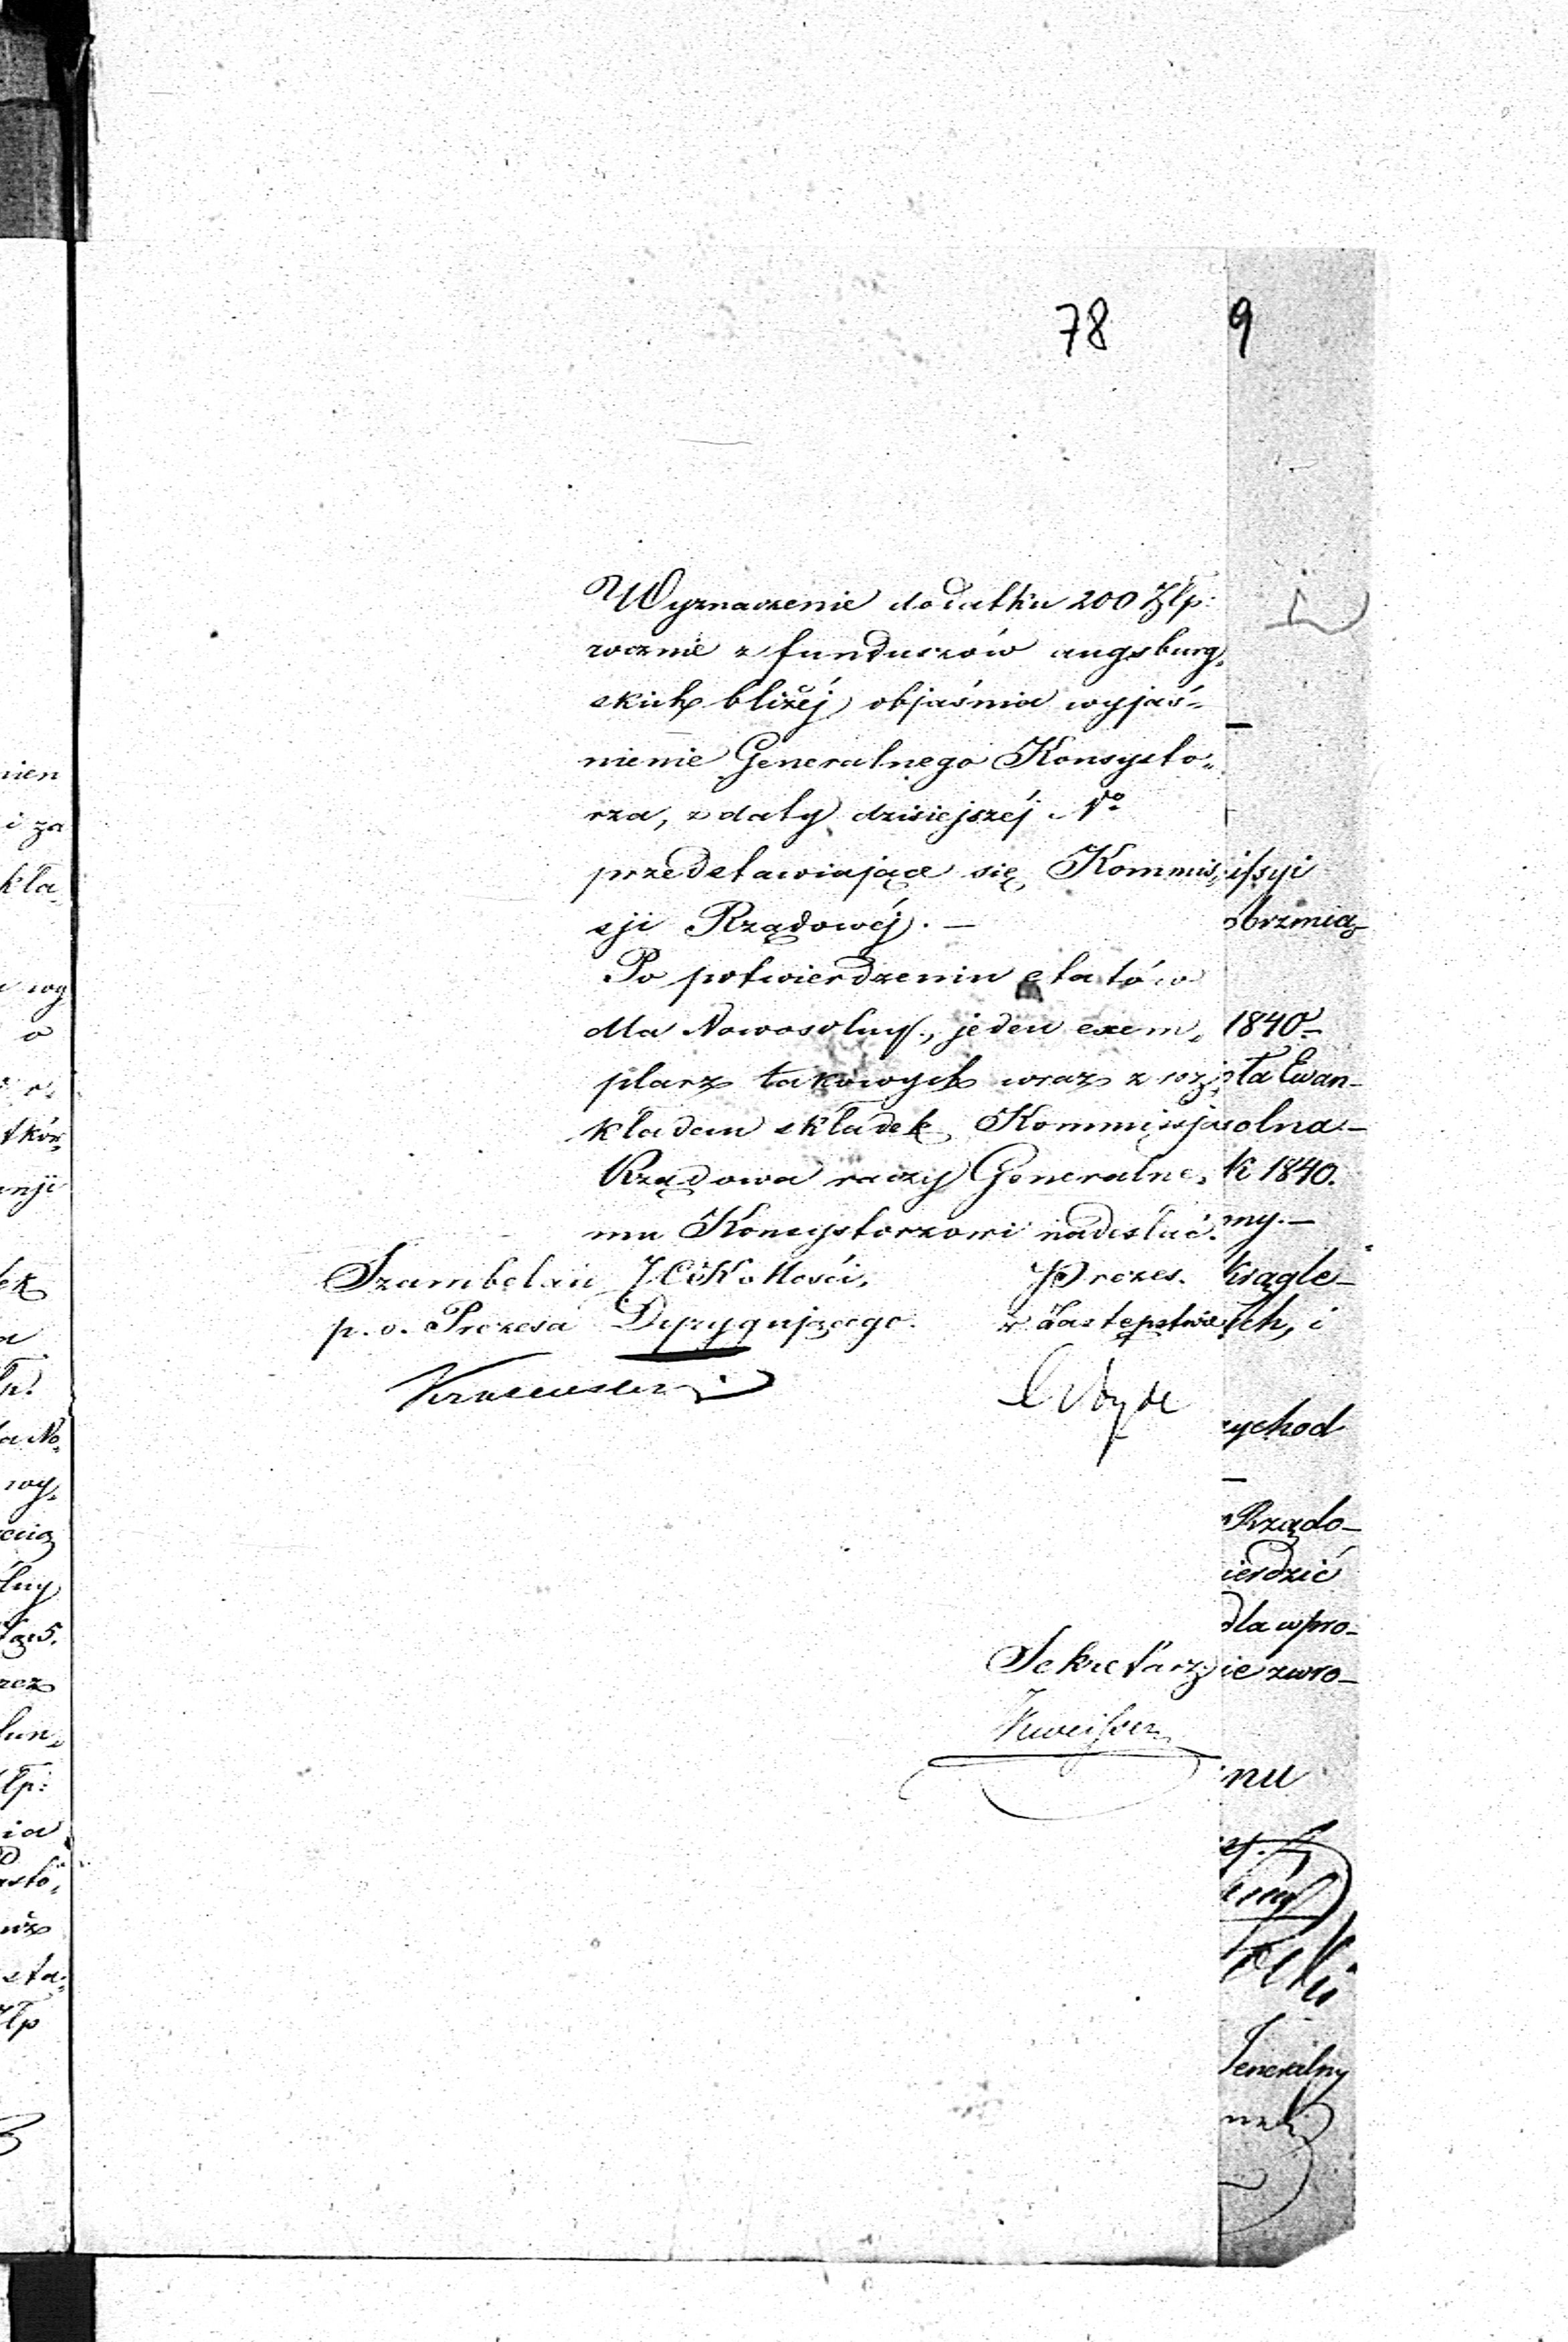 78
Wyznaczenie dodatku 200 Złp:
rocznie z funduszów augsburg„
skich bliżéj objaśnia wyjaś„
nienie Generalnego Konsysto„
rza, z daty dzisiejszéj No
przedstawiające się Kommis„
sji Rządowéj. —
Po potwierdzeniu etatów
dla Nowosolny, jeden exem„
plarz takowych wraz z roz„
kładem składek, Kommissja
Rządowa raczy Generalne„
mu Konsystorzowi nadesłać.
Szambelan J C K Mości, Prezes.
p. o. Prezesa Dyrygującego. w Zastępstwie
Sekretarz
9
issyi
brzmią
1840
ła Ewan-
solna-
k 1840.
my.—
krągle-
ych, i
ychod
Rządo-
ierdzić
dla wpro-
ie zwro-
nu
Generalny
nien
i za
kła„
wy
o
nji
ek
a
a No„
wy„
rez
łp:
ia
sta„
łp